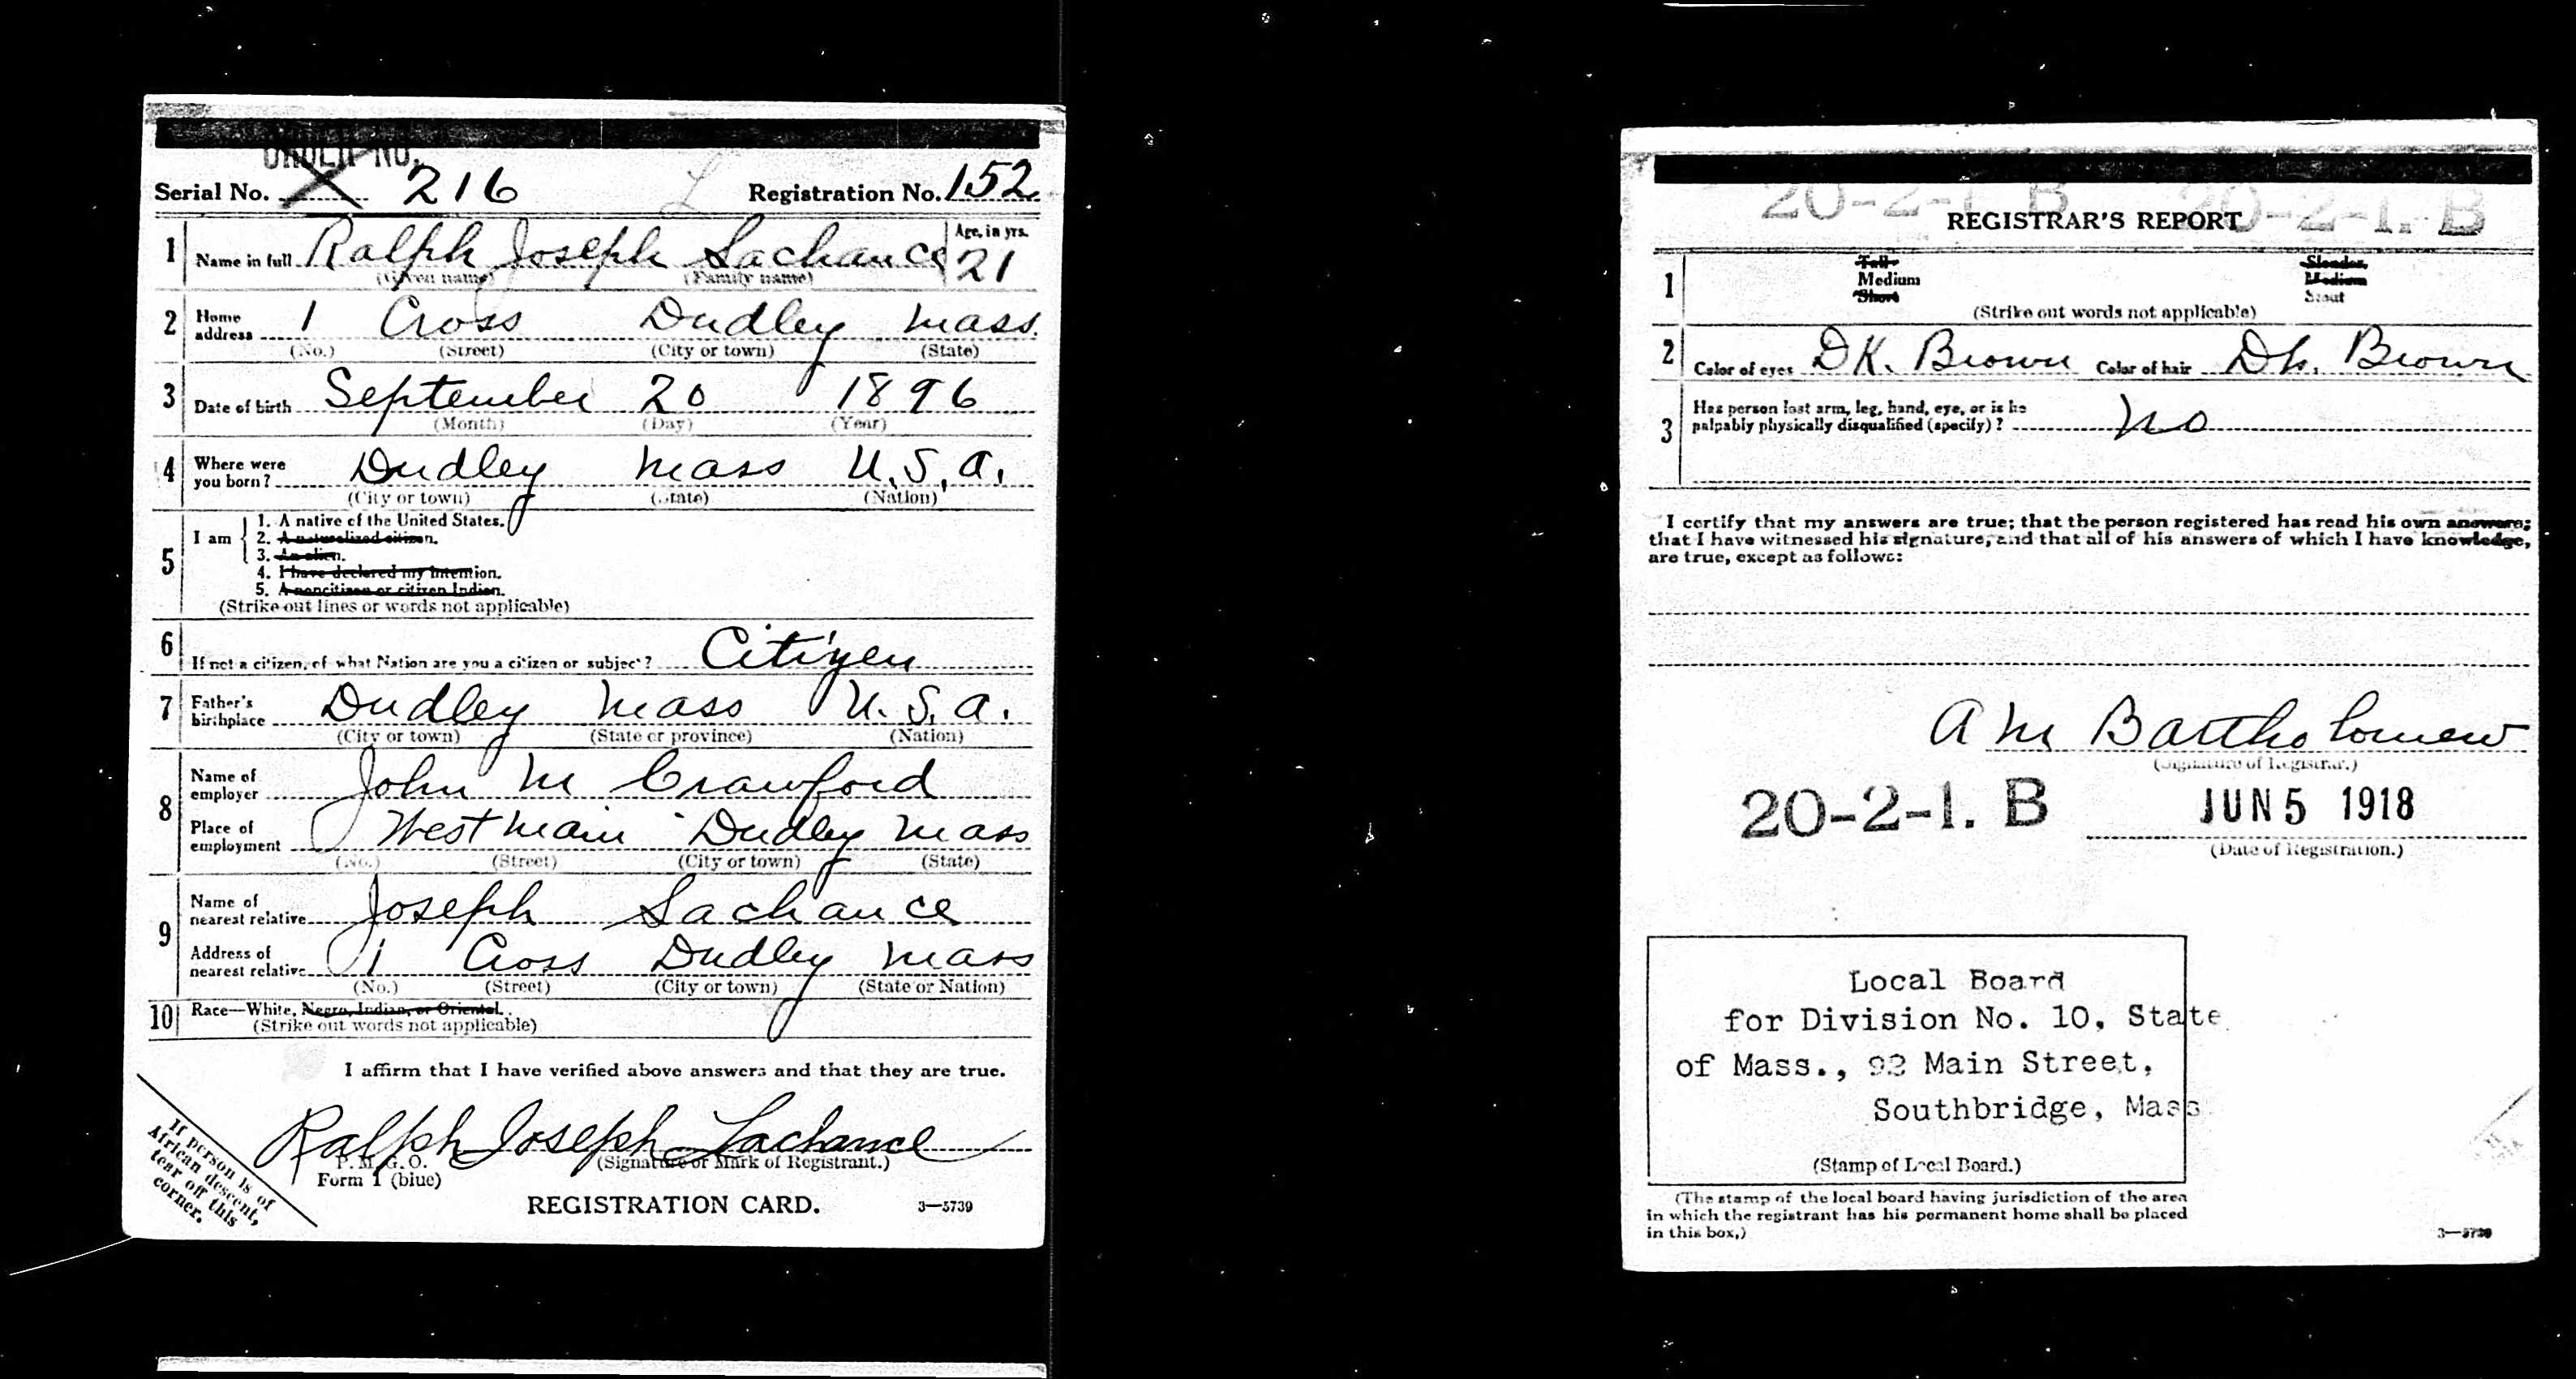 ORDER NO.
Serial No. 216 Registration No. 152
1 Name in full Ralph Joseph Lachance Age, in yrs. 21
(Given name) (Family name)
2 Home address 1 Cross Dudley Mass.
(No.) (Street) (City or town) (State)
3 Date of birth September 20 1896
(Month) (Day) (Year)
4 Where were you born? Dudley Mass U.S.A.
(City or town) (State) (Nation)
5 I am
1. A native of the United States.
2. A naturalized citizen.
3. An alien.
4. I have declared my intention.
5. A noncitizen or citizen Indian.
(Strike out lines or words not applicable)
6 If not a citizen, of what Nation are you a citizen or subject? Citizen
7 Father's birthplace Dudley Mass U.S.A.
(City or town) (State or province) (Nation)
8 Name of employer John M Crawford
Place of employment West Main Dudley Mass
(No.) (Street) (City or town) (State)
9 Name of nearest relative Joseph Lachance
Address of nearest relative 1 Cross Dudley Mass
(No.) (Street) (City or town) (State or Nation)
10 Race—White, Negro, Indian, or Oriental.
(Strike out words not applicable)
I affirm that I have verified above answers and that they are true.
Ralph Joseph Lachance
P. M. G. O. (Signature or Mark of Registrant.)
Form 1 (blue)
REGISTRATION CARD. 3—5739
If person is of
African descent,
tear off this
corner.
20-2-1. B 20-2-1. B
REGISTRAR'S REPORT
1 Tall Slender
Medium Medium
Short Stout
(Strike out words not applicable)
2 Color of eyes DK. Brown Color of hair Dk. Brown
3 Has person lost arm, leg, hand, eye, or is he
palpably physically disqualified (specify)? No
I certify that my answers are true; that the person registered has read his own answers;
that I have witnessed his signature, and that all of his answers of which I have knowledge,
are true, except as follows:
A M Bartholomew
(Signature of Registrar.)
20-2-1. B JUN 5 1918
(Date of Registration.)
Local Board
for Division No. 10, State
of Mass., 92 Main Street,
Southbridge, Mass.
(Stamp of Local Board.)
(The stamp of the local board having jurisdiction of the area
in which the registrant has his permanent home shall be placed
in this box.)
3—5739